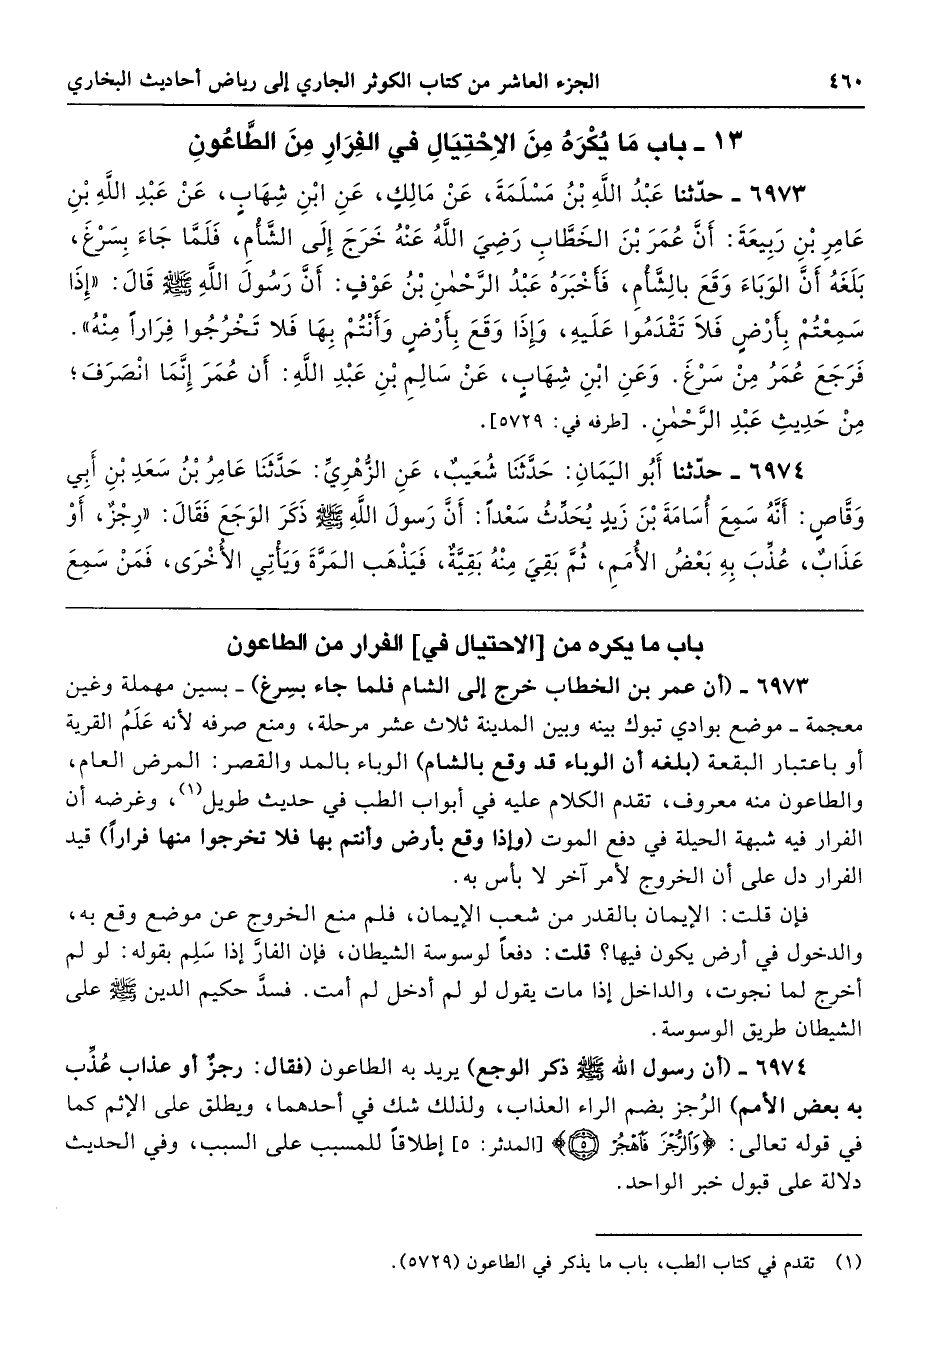 ٤٦٠ الجزء العاشر من كتاب الكوثر الجاري إلى رياض أحاديث البخاري
١٣ ـ باب مَا يُكْرَهُ مِنَ الاِحْتِيَالِ في الفِرَارِ مِنَ الطَّاعُونِ
٦٩٧٣ ـ حدّثنا عَبْدُ اللَّهِ بْنُ مَسْلَمَةَ، عَنْ مَالِكٍ، عَنِ ابْنِ شِهَابٍ، عَنْ عَبْدِ اللَّهِ بْنِ
عَامِرِ بْنِ رَبِيعَةَ: أَنَّ عُمَرَ بْنَ الخَطَّابِ رَضِيَ اللَّهُ عَنْهُ خَرَجَ إِلَى الشَّأْمِ، فَلَمَّا جَاءَ بِسَرْغَ،
بَلَغَهُ أَنَّ الوَبَاءَ وَقَعَ بِالشَّأْمِ، فَأَخْبَرَهُ عَبْدُ الرَّحْمٰنِ بْنُ عَوْفٍ: أَنَّ رَسُولَ اللَّهِ ﷺ قَالَ: «إِذَا
سَمِعْتُمْ بِأَرْضٍ فَلاَ تَقْدَمُوا عَلَيهِ، وَإِذَا وَقَعَ بِأَرْضٍ وَأَنْتُمْ بِهَا فَلا تَخْرُجُوا فِرَاراً مِنْهُ».
فَرَجَعَ عُمَرُ مِنْ سَرْغَ. وَعَنِ ابْنِ شِهَابٍ، عَنْ سَالِمِ بْنِ عَبْدِ اللَّهِ: أَن عُمَرَ إِنَّمَا انْصَرَفَ؛
مِنْ حَدِيثِ عَبْدِ الرَّحْمٰنِ. [طرفه في: ٥٧٢٩].
٦٩٧٤ ـ حدّثنا أَبُو اليَمَانِ: حَدَّثَنَا شُعَيبٌ، عَنِ الزُّهْرِيِّ: حَدَّثَنَا عَامِرُ بْنُ سَعَدِ بْنِ أَبِي
وَقَّاصٍ: أَنَّهُ سَمِعَ أُسَامَةَ بْنَ زَيدٍ يُحَدِّثُ سَعْداً: أَنَّ رَسولَ اللَّهِ ﷺ ذَكَرَ الوَجَعَ فَقَالَ: «رِجْزٌ، أَوْ
عَذَابٌ، عُذِّبَ بِهِ بَعْضُ الأُمَمِ، ثُمَّ بَقِيَ مِنْهُ بَقِيَّةٌ، فَيَذْهَب المَرَّةَ وَيَأْتِي الأُخْرَى، فَمَنْ سَمِعَ
باب ما يكره من [الاحتيال في] الفرار من الطاعون
٦٩٧٣ ـ (أن عمر بن الخطاب خرج إلى الشام فلما جاء بسِرغ) ـ بسين مهملة وغين
معجمة ـ موضع بوادي تبوك بينه وبين المدينة ثلاث عشر مرحلة، ومنع صرفه لأنه عَلَمُ القرية
أو باعتبار البقعة (بلغه أن الوباء قد وقع بالشام) الوباء بالمد والقصر: المرض العام،
والطاعون منه معروف، تقدم الكلام عليه في أبواب الطب في حديث طويل(١)، وغرضه أن
الفرار فيه شبهة الحيلة في دفع الموت (وإذا وقع بأرض وأنتم بها فلا تخرجوا منها فراراً) قيد
الفرار دل على أن الخروج لأمر آخر لا بأس به.
فإن قلت: الإيمان بالقدر من شعب الإيمان، فلم منع الخروج عن موضع وقع به،
والدخول في أرض يكون فيها؟ قلت: دفعاً لوسوسة الشيطان، فإن الفارَّ إذا سَلِم بقوله: لو لم
أخرج لما نجوت، والداخل إذا مات يقول لو لم أدخل لم أمت. فسدَّ حكيم الدين ﷺ على
الشيطان طريق الوسوسة.
٦٩٧٤ ـ (أن رسول الله ﷺ ذكر الوجع) يريد به الطاعون (فقال: رجزٌ أو عذاب عُذِّب
به بعض الأمم) الرُجز بضم الراء العذاب، ولذلك شك في أحدهما، ويطلق على الإثم كما
في قوله تعالى: ﴿وَٱلرُّجْزَ فَٱهْجُرْ ۝٥﴾ [المدثر: ٥] إطلاقاً للمسبب على السبب، وفي الحديث
دلالة على قبول خبر الواحد.
(١) تقدم في كتاب الطب، باب ما يذكر في الطاعون (٥٧٢٩).